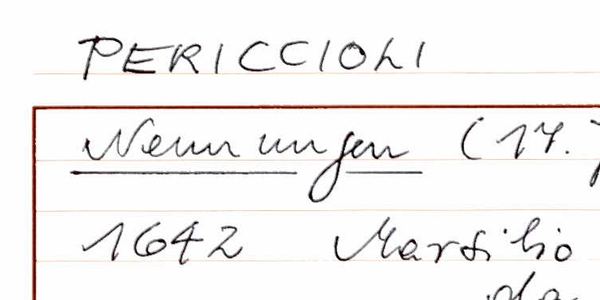 PERICCIOLI
Nennungen (17.
1642 Marsilio
da